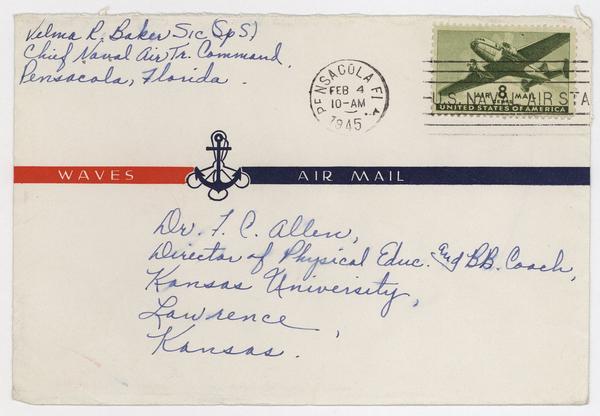 Velma R. Baker S1c (Sp S)
Chief Naval Air Tr. Command,
Pensacola, Florida.
PENSACOLA, FLA.
FEB 4
10-AM
1945
U.S. NAVAL AIR STA
AIR 8 MAIL
CENTS
UNITED STATES OF AMERICA
WAVES AIR MAIL
Dr. F. C. Allen,
Director of Physical Educ. and B.B. Coach,
Kansas University,
Lawrence,
Kansas.